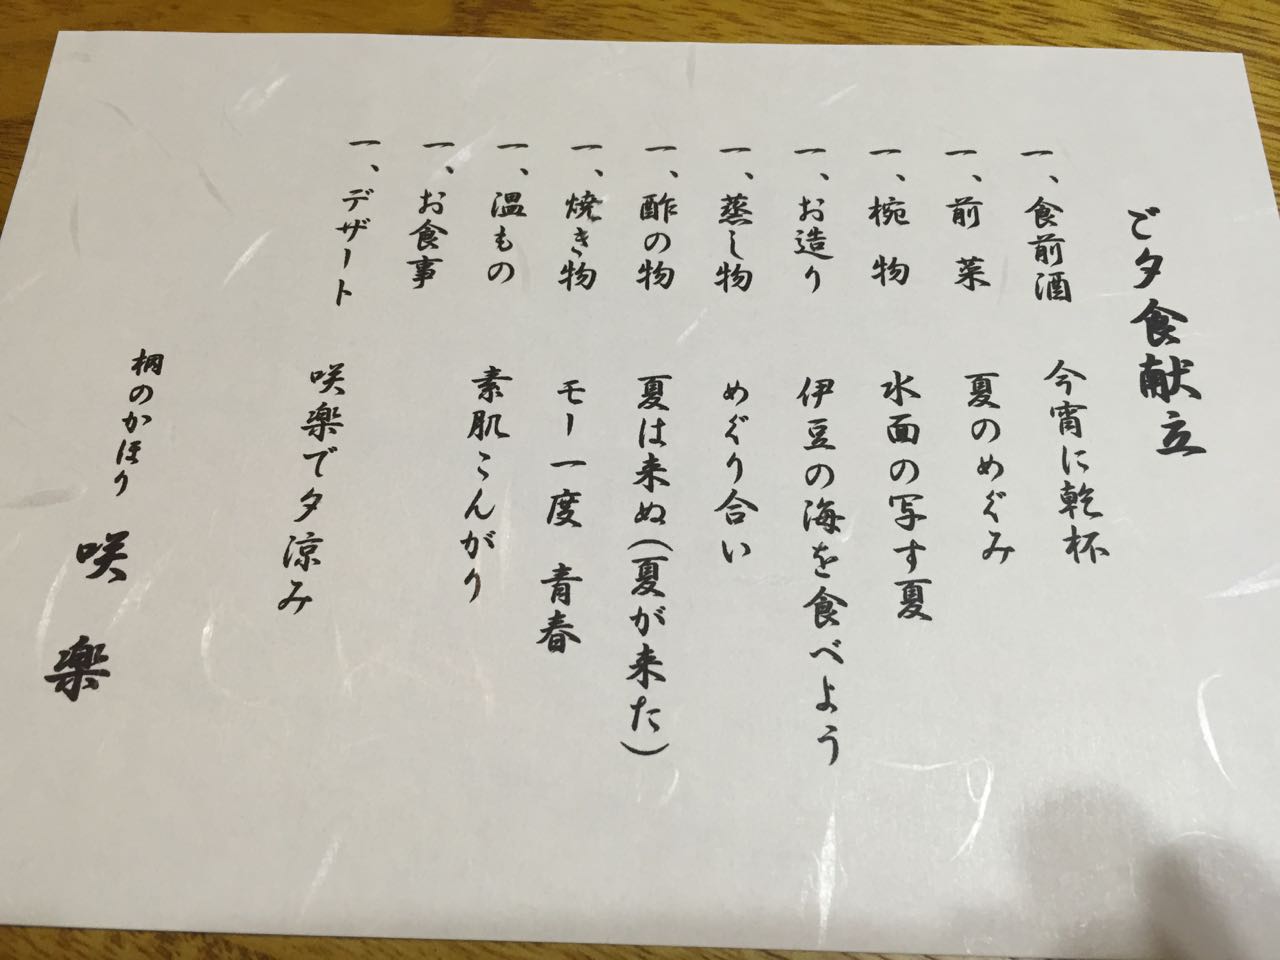 ご夕食献立
一、食前酒　今宵に乾杯
一、前　菜　夏のめぐみ
一、椀　物　水面の写す夏
一、お造り　伊豆の海を食べよう
一、蒸し物　めぐり合い
一、酢の物　夏は来ぬ(夏が来た)
一、焼き物　モー一度　青春
一、温もの　素肌こんがり
一、お食事
一、デザート　咲楽で夕涼み
桐のかほり　咲　楽